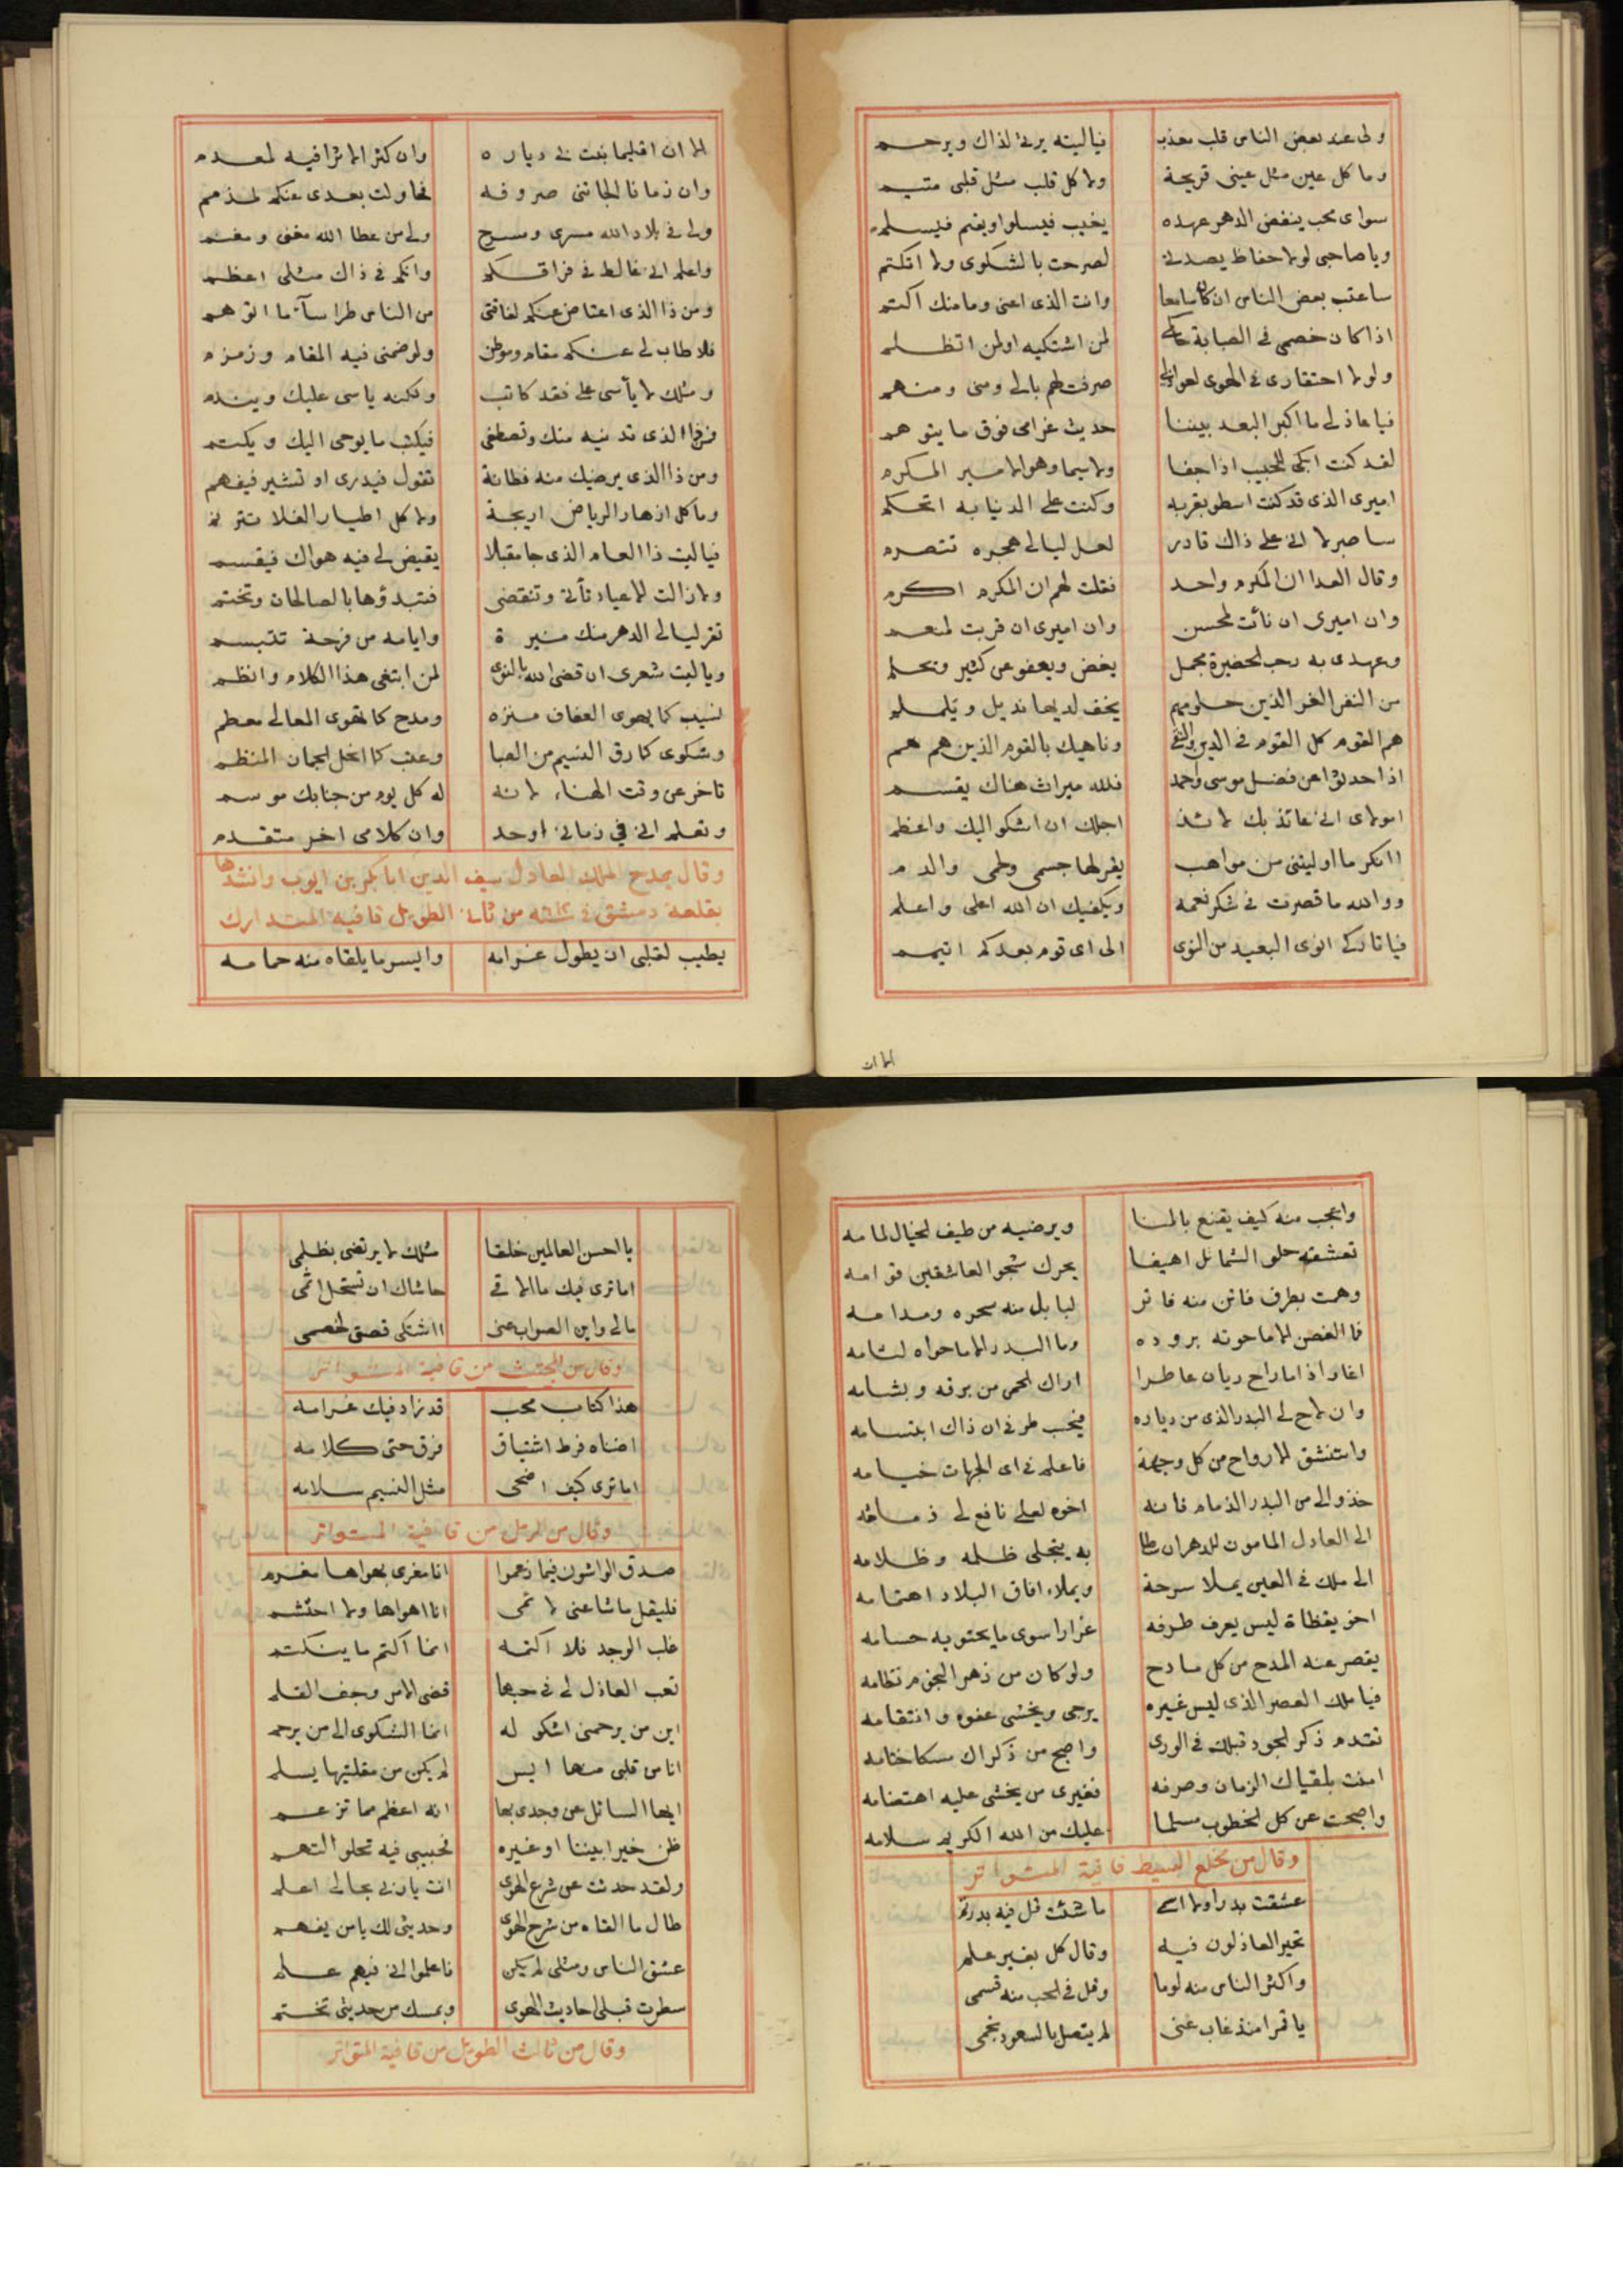 ولى عند بعض الناس قلب معذب فياليته يرثى لذاك ويرحم
وما كل عين مثل عينى قريحة ولا كل قلب مثل قلبى متيم
سواى محب ينقض الدهر عهده يغيب فيسلوا ويقيم فيسلم
ويا صاحبى لولا حفاظ يصدنى لصرحت بالشكوى ولا اتكتم
ساعتب بعض الناس ان كان سامعا وانت الذى اعنى وما منك اكتم
اذا كان خصمى فى الصبابة حاكمى لمن اشتكيه او لمن اتظلم
ولولا احتقارى فى الهوى لعواذلى صرفت لهم بالى ومنى ومنهم
فيا عاذلى ما اكبر البعد بيننا حديث غرامى فوق ما يتوهم
لقد كنت ابكى للحبيب اذا جفا ولا سيما وهو الامير المكرم
اميرى الذى قد كنت اسطو بقربه وكنت على الدنيا به اتحكم
ساصبر لا انى على ذاك قادر لعل ليالى هجره تتصرم
وقال العدا ان المكرم واحد فقلت لهم ان المكرم اكرم
وان اميرى ان نائت لمحسن وان اميرى ان قربت لمنعم
وعهدى به رحب الحضيرة مجمل يغض ويعفو عن كثير ويحلم
من النفر الغر الذين حلومهم يخف لديها نذبل ويلملم
هم القوم كل القوم فى الدين والتقى وناهيك بالقوم الذين هم هم
اذا حدثوا عن فضل موسى واحمد فلله ميراث هناك يقسم
امولاى انى عائذ بك لائذ اجلك ان اشكو اليك واعظم
اانكر ما اوليتنى من مواهب يقر لها جسمى ولحمى والدم
ووالله ما قصرت فى شكر نعمة ويكفيك ان الله اعلى واعلم
فيا تاركى انوى البعيد من النوى الى اى قوم بعدكم اتيمم
الا ان
الا ان اقليما نبت لى دياره وان كثر الاثرا فيه لمعدم
وان زمانا الجاتنى صروفه فحاولت بعدى عنكم لمذمم
ولى فى بلاد الله مسرى ومسرح ولى من عطا الله مغنى ومغنم
واعلم انى غالط فى فراقكم وانكم فى ذاك مثلى اعظم
ومن ذا الذى اعتاض عنكم لفاقتى من الناس طرا سآء ما اتوهم
فلا طاب لى عنكم مقام وموطن ولو ضمنى فيه المقام وزمزم
ومثلك لا يأسى على فقد كاتب ولكنه ياسى عليك ويندم
فمن ذا الذى تدنيه منك وتصطفى فيكتب ما يوحى اليك ويكتم
ومن ذا الذى يرضيك منه فطانة تقول فيدرى او تشير فيفهم
وما كل ازهار الرياض اريجة ولا كل اطيار الفلا تترنم
فيا ليت ذا العام الذى جا مقبلا يقيض لى فيه هواك فيقسم
ولا زالت الاعياد تأتى وتنقضى فتبدؤها بالصالحات وتختم
تقر ليالى الدهر منك منيرة وايامه من فرحة تتبسم
ويا ليت شعرى ان قضى الله بالنوى لمن ابتغى هذا الكلام وانظم
نسيب كما يهوى العفاف منزه ومدح كما تهوى المعالى معظم
وشكوى كما رق النسيم من الصبا وعتب كما انحل الجمان المنظم
تاخر عن وقت الهناء لانه له كل يوم من جنابك موسم
وتعلم انى فى زمانى اوحد وان كلامى اخر متقدم
وقال يمدح الملك العادل سيف الدين ابا بكر بن ايوب وانشدها
بقلعة دمشق فى سنة من ثانى الطويل قافيه المتدارك
يطيب لقلبى ان يطول غرامه وايسر ما يلقاه منه حمامه
واعجب منه كيف يقنع بالمنا ويرضيه من طيف الخيال لمامه
تعشقته حلو الشمائل اهيفا يحرك شجو العاشقين قوامه
وهمت بطرف فاتن منه فاتر لبابل منه سحره ومدامه
فما الغصن الا ما حوته بروده وما البدر الا ما حواه لثامه
اغار اذا ما راح ريان عاطرا اراك الحمى من برقه وبشامه
وان لاح لى البدر الذى من دياره فيحسب طرفى ان ذاك ابتسامه
واستنشق الارواح من كل وجهة فاعلم فى اى الجهات خيامه
خذوا لى من البدر الذمام فانه اخوه لعلى نافع لى ذمامه
الى العادل المامون للدهر ان سطا به ينجلى ظلمه وظلامه
الى ملك فى العين يملا سرحة ويملاء افاق البلاد اهتمامه
اخو يقظاة ليس يعرف طرفه غرارا سوى ما يحتويه حسامه
يقصر عنه المدح من كل مادح ولو كان من زهر النجوم نظامه
فيا ملك العصر الذى ليس غيره يرجى ويخشى عفوه وانتقامه
تقدم ذكر الجود قبلك فى الورى واصبح من ذكراك مسكا ختامه
امنت بلقياك الزمان وصرفه فغيرى من يخشى عليه اهتضامه
واصبحت عن كل الخطوب مسلما عليك من الله الكريم سلامه
وقال من مخلع البسيط قافية المتواتر
عشقت بدرا ولا اسمى ما شئت قل فيه بدر تم
تحير العاذلون فيه وقال كل بغير علم
واكثر الناس منه لوما وقل فى الحب منه قسمى
يا قمرا منذ غاب عنى لم يتصل بالسعود نجمى
يا احسن العالمين خلقا مثلك لا يرتضى بظلمى
اما ترى فيك ما الاقى حاشاك ان تستحل اثمى
مالى واين الصواب عنى ااشتكى قصتى لخصمى
وقال من المجتث من قافية المتواتر
هذا كتاب محب قد زاد فيك غرامه
اضناه فرط اشتياق فرق حتى كلامه
اما ترى كيف اضحى مثل النسيم سلامه
وقال من الرمل من قافية المتواتر
صدق الواشون فيما زعموا انا مغرى بهواها مغرم
فليقل ما شا عنى لائمى انا اهواها ولا احتشم
غلب الوجد فلا اكتمه انما اكتم ما ينكتم
تعب العاذل لى فى حبها قضى الامر وجف القلم
اين من يرحمنى اشكو له انما الشكوى الى من يرحم
انا من قلبى منها ايس لم يكن من مقلتيها يسلم
ايها السائل عن وجدى بها انه اعظم مما تزعم
ظن خيرا بيننا او غيره فحبيبى فيه تحلو التهم
ولقد حدثت عن شرع الهوى انت يا ربى بحالى اعلم
طال ما القاه من شرح الهوى وحديثى لك يا من يفهم
عشق الناس ومثلى لم يكن فاعلموا انى فيهم علم
سطرت قبلى احاديث الهوى وبمسك من حديثى تختم
وقال من ثالث الطويل من قافية المتواتر